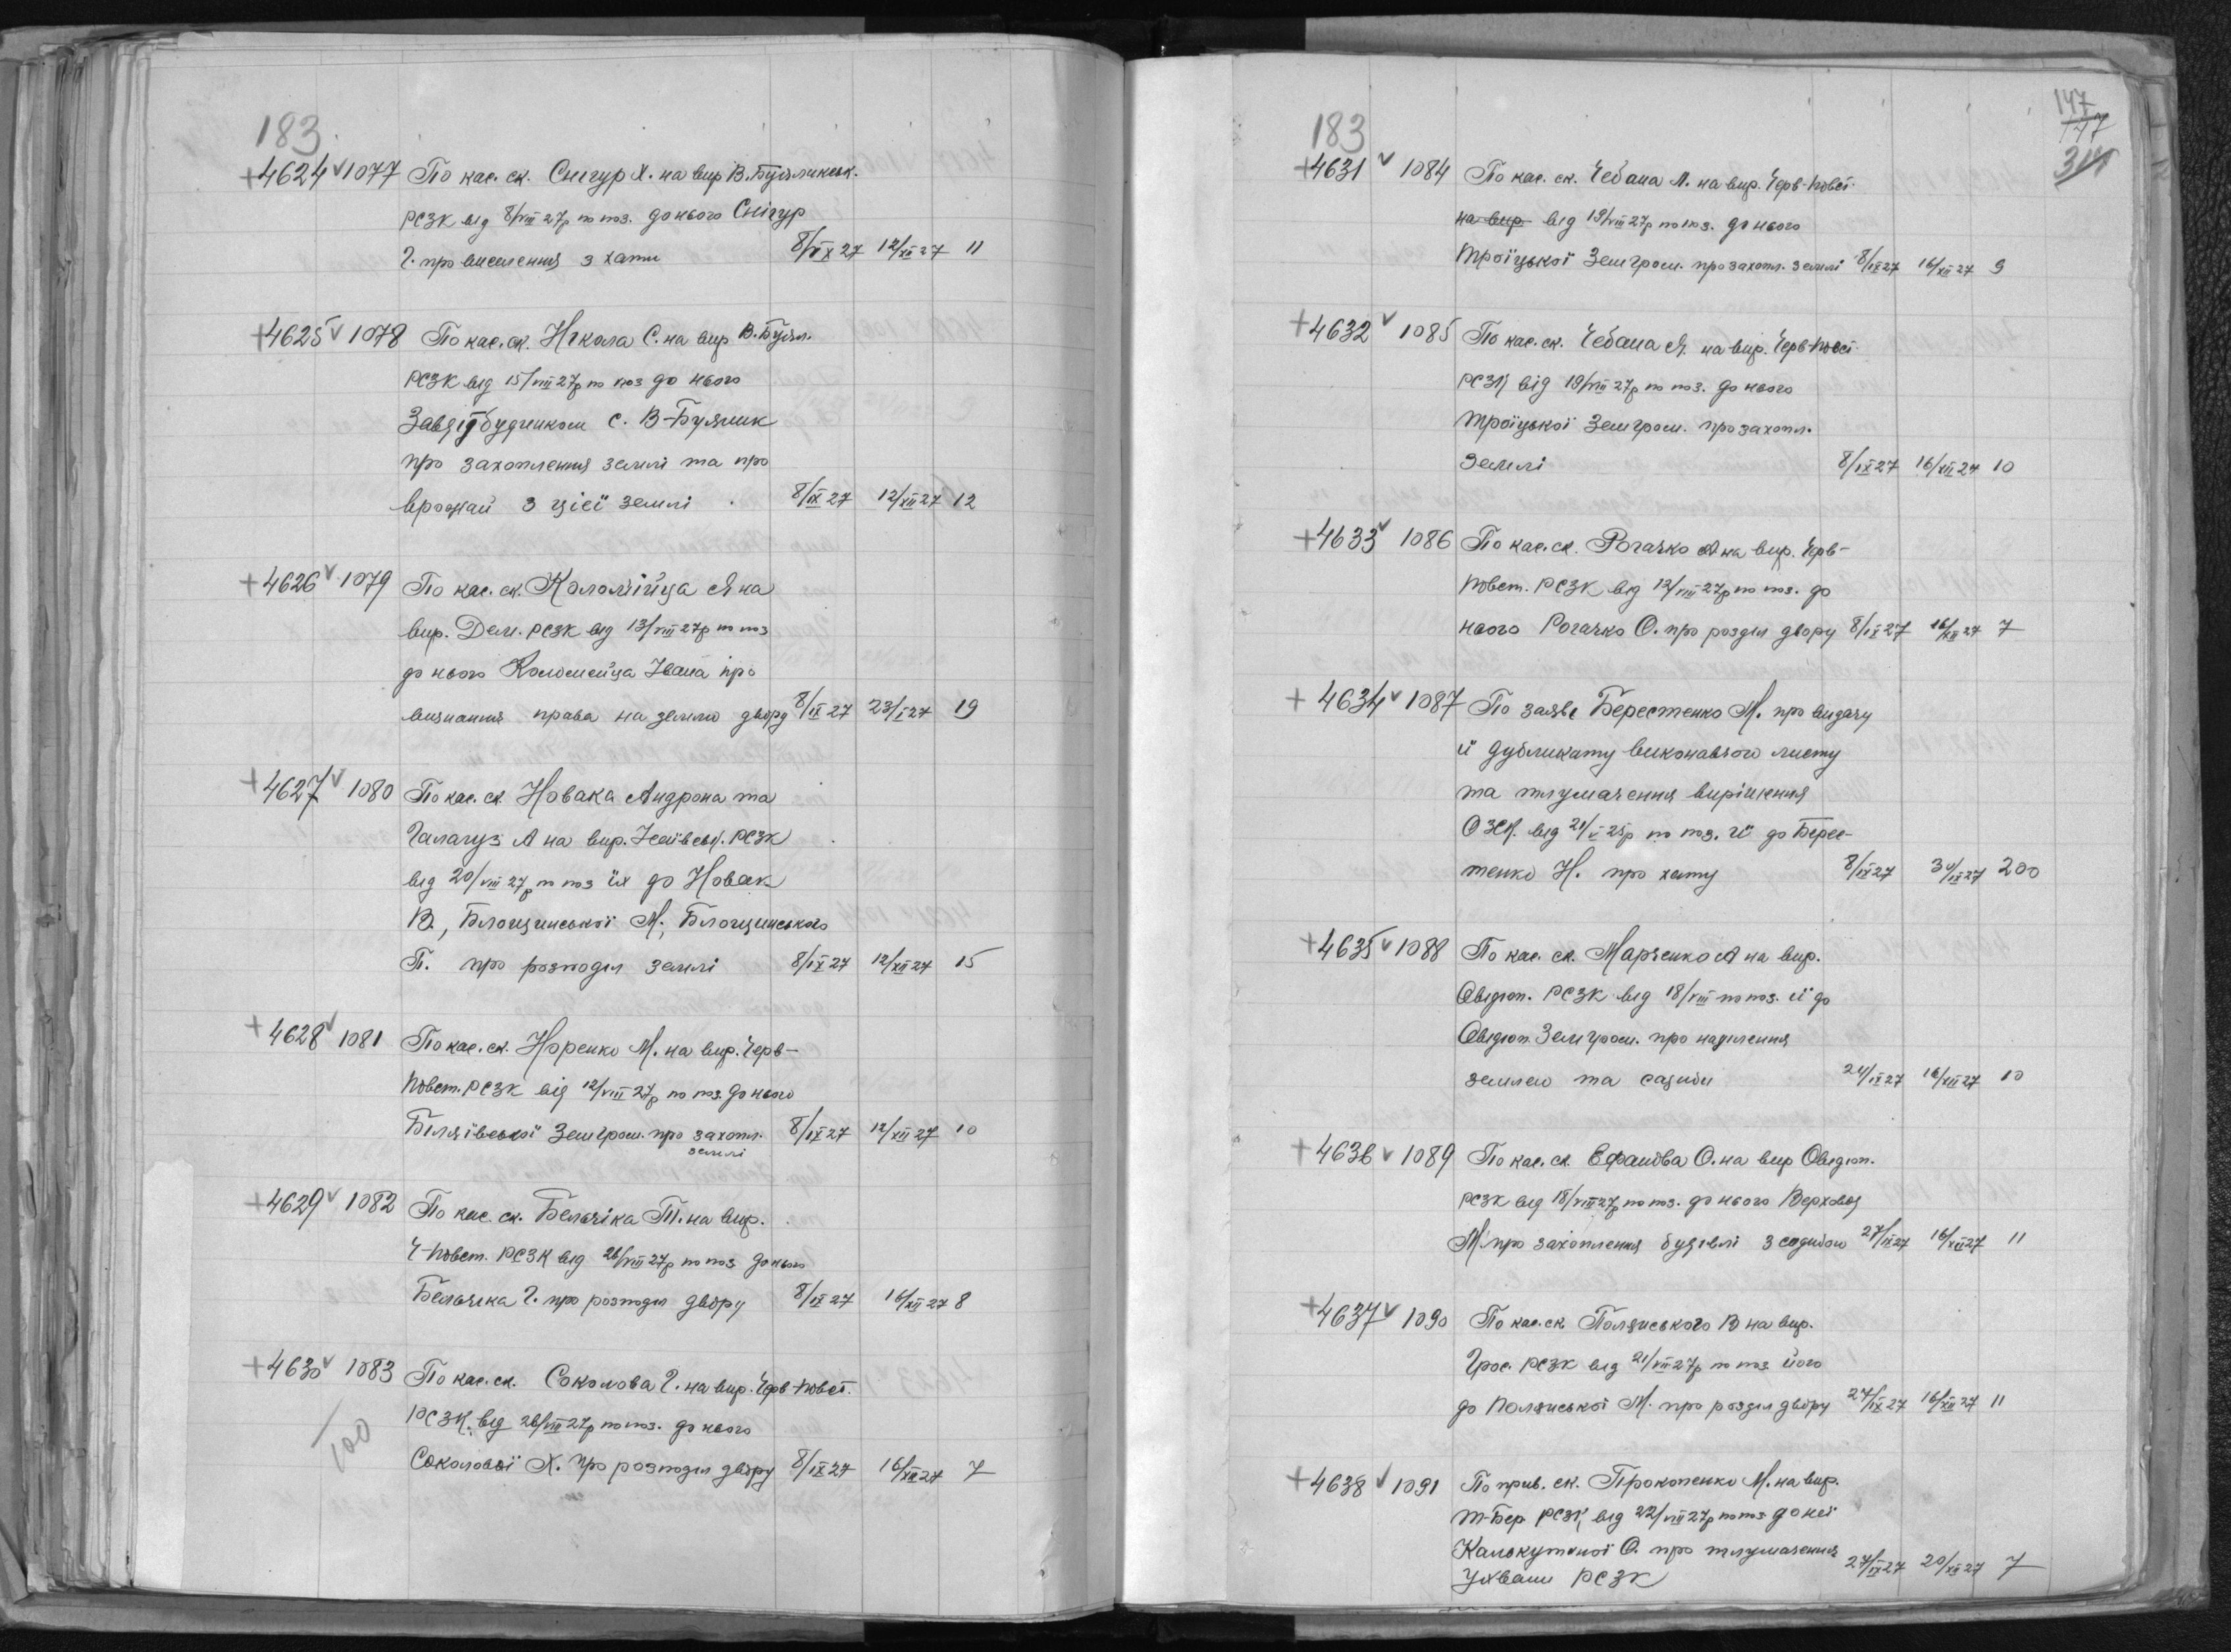 183
+4624 v 1077 По кас. ск. Снігур Х. на вир В. Буяликськ.
РСЗК від 8/VIII 27р по поз. до нього Снігур
Г. про виселення з хати 8/IX 27 12/XII 27 11
+4625 v 1078 По кас. ск. Нікола С. на вир В. Буял.
РСЗК від 15/VIII 27р по поз до нього
Завдітбудинком с. В-Буялик
про захоплення землі та про
врожай з цієї землі 8/IX 27 12/XII 27 12
+4626 v 1079 По кас. ск. Коломійца Я на
вир. Дем. РСЗК від 13/VIII 27р по поз
до нього Коломейца Івана про
визнання права на землю двору 8/IX 27 23/X 27 19
+4627 v 1080 По кас. ск. Новака Андрона та
Галагуз А на вир. Ісаівськ. РСЗК
від 20/VIII 27р по поз їх до Новак
В., Блощинської М., Блощинського
П. про розподіл землі 8/IX 27 12/XII 27 15
+4628 v 1081 По кас. ск. Норенко М. на вир. Черв-
повст. РСЗК від 12/VIII 27р по поз. до нього
Біляівської Земгром. про захопл. 8/IX 27 12/XII 27 10
землі
+4629 v 1082 По кас. ск. Бельчіка Т. на вир.
Ч-повст. РСЗК від 26/VIII 27р по поз до нього
Бельчіка Г. про розподіл двору 8/IX 27 16/XII 27 8
+4630 v 1083 По кас. ск. Соколова Г. на вир. Черв-повст.
РСЗК. від 26/VIII 27р по поз. до нього
100
Соколової Х. про розподіл двору 8/IX 27 16/XII 27 7
183
147
147
314
+4631 v 1084 По кас. ск. Чебана Л. на вир. Черв-повст.
на вир. від 19/VIII 27р по поз. до нього
Троїцької Земгром. про захопл. землі 8/IX 27 16/XII 27 9
+4632 v 1085 По кас. ск. Чебана Я. на вир. Черв-повст
РСЗК від 19/VIII 27р по поз. до нього
Троїцької Земгром. про захопл.
землі 8/IX 27 16/XII 27 10
+4633 v 1086 По кас. ск. Рогачко А на вир. Черв-
повст. РСЗК від 12/VIII 27р по поз. до
нього Рогачко О. про розділ двору 8/IX 27 16/XII 27 7
+4634 v 1087 По заяві Берестенко М. про видачу
їй дубликату виконавчого листу
та тлумачення вирішення
ОЗК. від 21/V 25р по поз. її до Берес-
тенко Н. про хату 8/IX 27 30/IX 27 200
+4635 v 1088 По кас. ск. Марченко А на вир.
Овідіоп. РСЗК від 18/VIII по поз. її до
Овідіоп. Земгром. про наділення
землею та садиби 24/IX 27 16/XII 27 10
+4636 v 1089 По кас. ск. Ефанова О. на вир Овідіоп.
РСЗК від 18/VIII 27р по поз. до нього Верховод
М. про захоплення будівлі з садибою 27/IX 27 16/XII 27 11
+4637 v 1090 По кас. ск. Полянського В на вир.
Грос. РСЗК від 21/VIII 27р по поз його
до Полянської М. про розділ двору 27/IX 27 16/XII 27 11
+4638 v 1091 По прив. ск. Прокопенко М. на вир.
Т-Бер РСЗК від 22/VIII 27р по поз до неї
Калькутиної О. про тлумачення
ухвали РСЗК 27/IX 27 20/XII 27 7